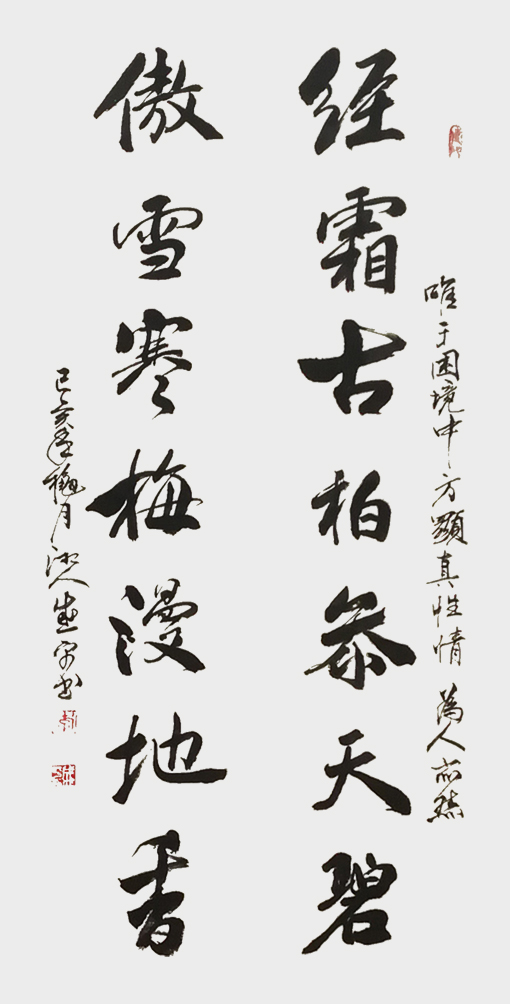 唯于困境中方顯真性情為人亦然
经霜古柏叅天碧
傲雪寒梅漫地香
己亥年桃月
书